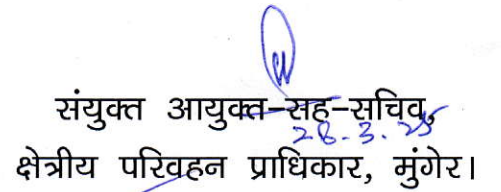 संयुक्त आयुक्त-सह-सचिव,
28.3.25
क्षेत्रीय परिवहन प्राधिकार, मुंगेर।